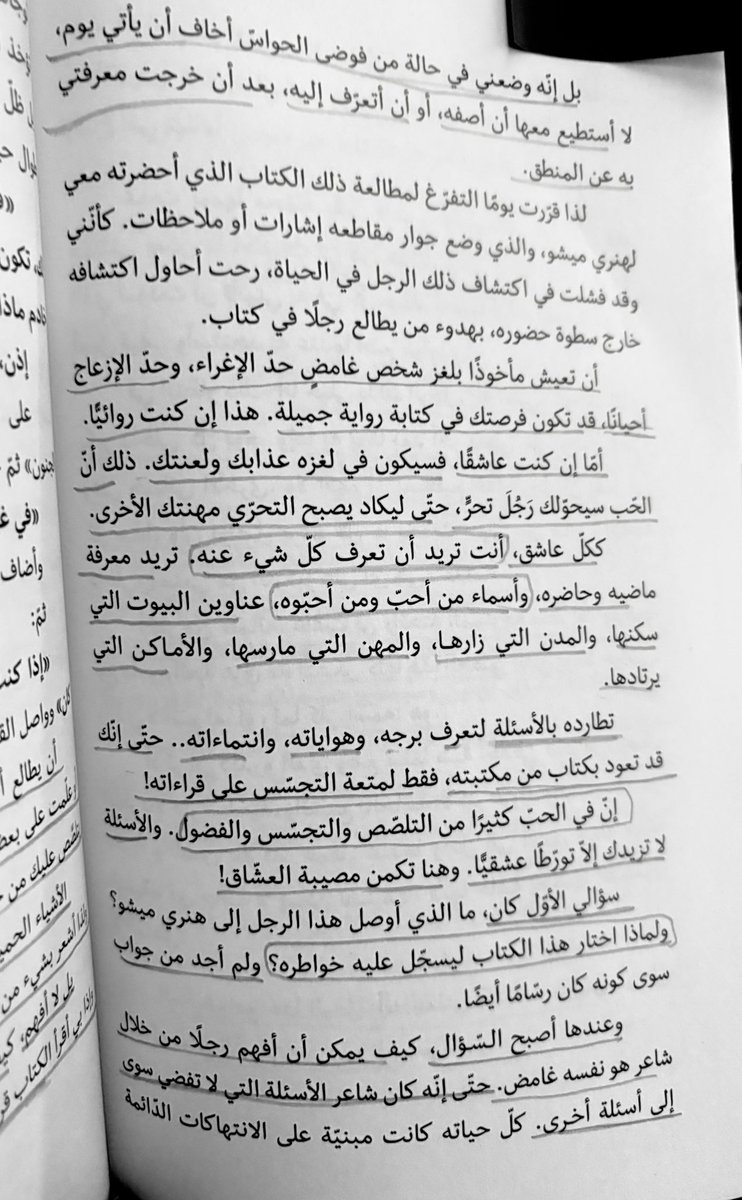 بل إنّه وضعني في حالة من فوضى الحواسّ أخاف أن يأتي يوم،
لا أستطيع معها أن أصفه، أو أن أتعرّف إليه، بعد أن خرجت معرفتي
به عن المنطق.
لذا قرّرت يومًا التفرّغ لمطالعة ذلك الكتاب الذي أحضرته معي
لهنري ميشو، والذي وضع جوار مقاطعه إشارات أو ملاحظات. كأنّني
وقد فشلت في اكتشاف ذلك الرجل في الحياة، رحت أحاول اكتشافه
خارج سطوة حضوره، بهدوء من يطالع رجلًا في كتاب.
أن تعيش مأخوذًا بلغز شخص غامضٍ حدّ الإغراء، وحدّ الإزعاج
أحيانًا، قد تكون فرصتك في كتابة رواية جميلة. هذا إن كنت روائيًّا.
أمّا إن كنت عاشقًا، فسيكون في لغزه عذابك ولعنتك. ذلك أنّ
الحّب سيحوّلك رَجُلَ تحرٍّ، حتّى ليكاد يصبح التحرّي مهنتك الأخرى.
ككلّ عاشق، أنت تريد أن تعرف كلّ شيء عنه. تريد معرفة
ماضيه وحاضره، وأسماء من أحبّ ومن أحبّوه، عناوين البيوت التي
سكنها، والمدن التي زارهـا، والمهن التي مارسها، والأماكن التي
يرتادها.
تطارده بالأسئلة لتعرف برجه، وهواياته، وانتماءاته.. حتّى إنّك
قد تعود بكتاب من مكتبته، فقط لمتعة التجسّس على قراءاته!
إنّ في الحبّ كثيرًا من التلصّص والتجسّس والفضول. والأسئلة
لا تزيدك إلاّ تورّطًا عشقيًّا. وهنا تكمن مصيبة العشّاق!
سؤالي الأوّل كان، ما الذي أوصل هذا الرجل إلى هنري ميشو؟
ولماذا اختار هذا الكتاب ليسجّل عليه خواطره؟ ولم أجد من جواب
سوى كونه كان رسّامًا أيضًا.
وعندها أصبح السّؤال، كيف يمكن أن أفهم رجلًا من خلال
شاعر هو نفسه غامض. حتّى إنّه كان شاعر الأسئلة التي لا تفضي سوى
إلى أسئلة أخرى. كلّ حياته كانت مبنيّة على الانتهاكات الدّائمة